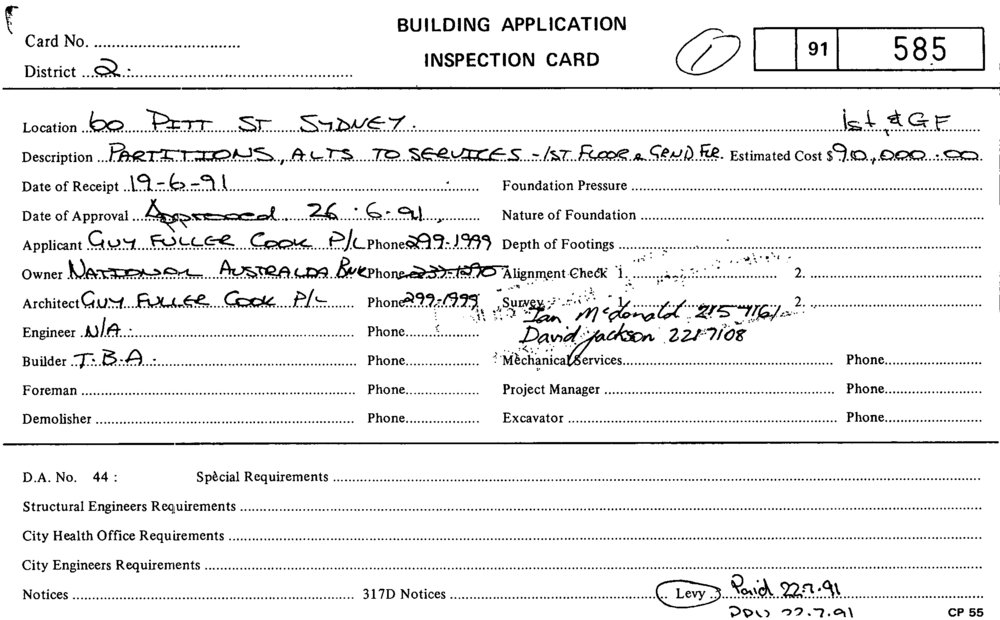 BUILDING APPLICATION
INSPECTION CARD
Card No.
District 2.
1
91 585
Location 60 PITT ST SYDNEY. 1st, & GF
Description PARTITIONS, ALTS TO SERVICES - 1ST FLOOR & GRND FLR. Estimated Cost $ 90,000.00
Date of Receipt 19-6-91 Foundation Pressure
Date of Approval Approved 26.6.91 Nature of Foundation
Applicant GUY FULLER COOK P/L Phone 299-1999 Depth of Footings
Owner NATIONAL AUSTRALIA BNK Phone Alignment Check 1. 2.
Architect GUY FULLER COOK P/L Phone 299-1999 Survey 1. 2.
Ian McDonald 215 7161
Engineer N/A. Phone David Jackson 221 7108
Builder T.B.A. Phone Mechanical Services Phone
Foreman Phone Project Manager Phone
Demolisher Phone Excavator Phone
D.A. No. 44 : Special Requirements
Structural Engineers Requirements
City Health Office Requirements
City Engineers Requirements
Notices 317D Notices Levy Paid 22.7.91
22.7.91 CP 55